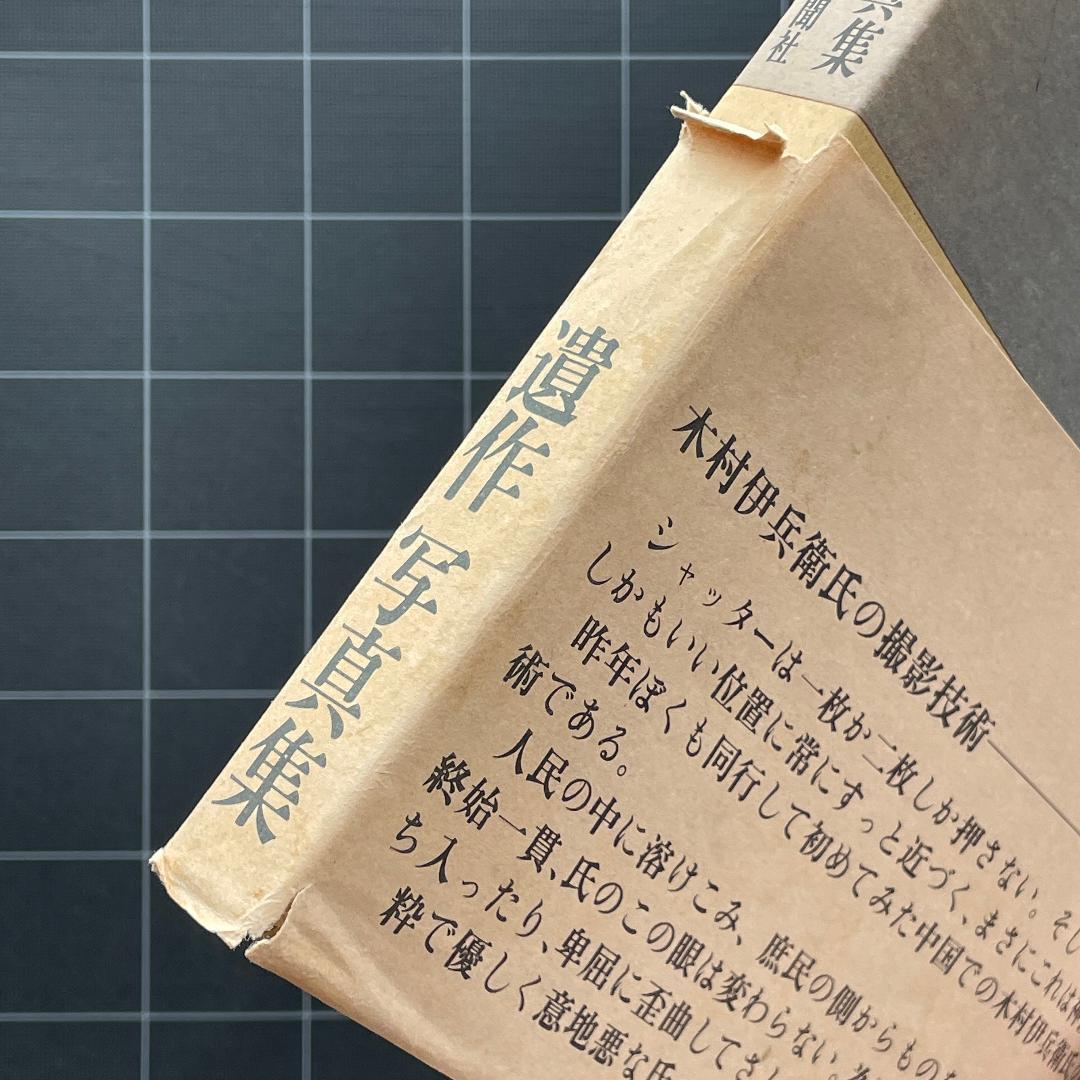 兵集
聞社
遺作 写真集
木村伊兵衛氏の撮影技術――
シャッターは一枚か二枚しか押さない。そし
しかもいい位置に常にすっと近づく、まさにこれは神
昨年ぼくも同行して初めてみた中国での木村伊兵衛氏の
術である。
人民の中に溶けこみ、庶民の側からものを
終始一貫、氏のこの眼は変わらない。
ち入ったり、卑屈に歪曲してさし
粋で優しく意地悪な氏